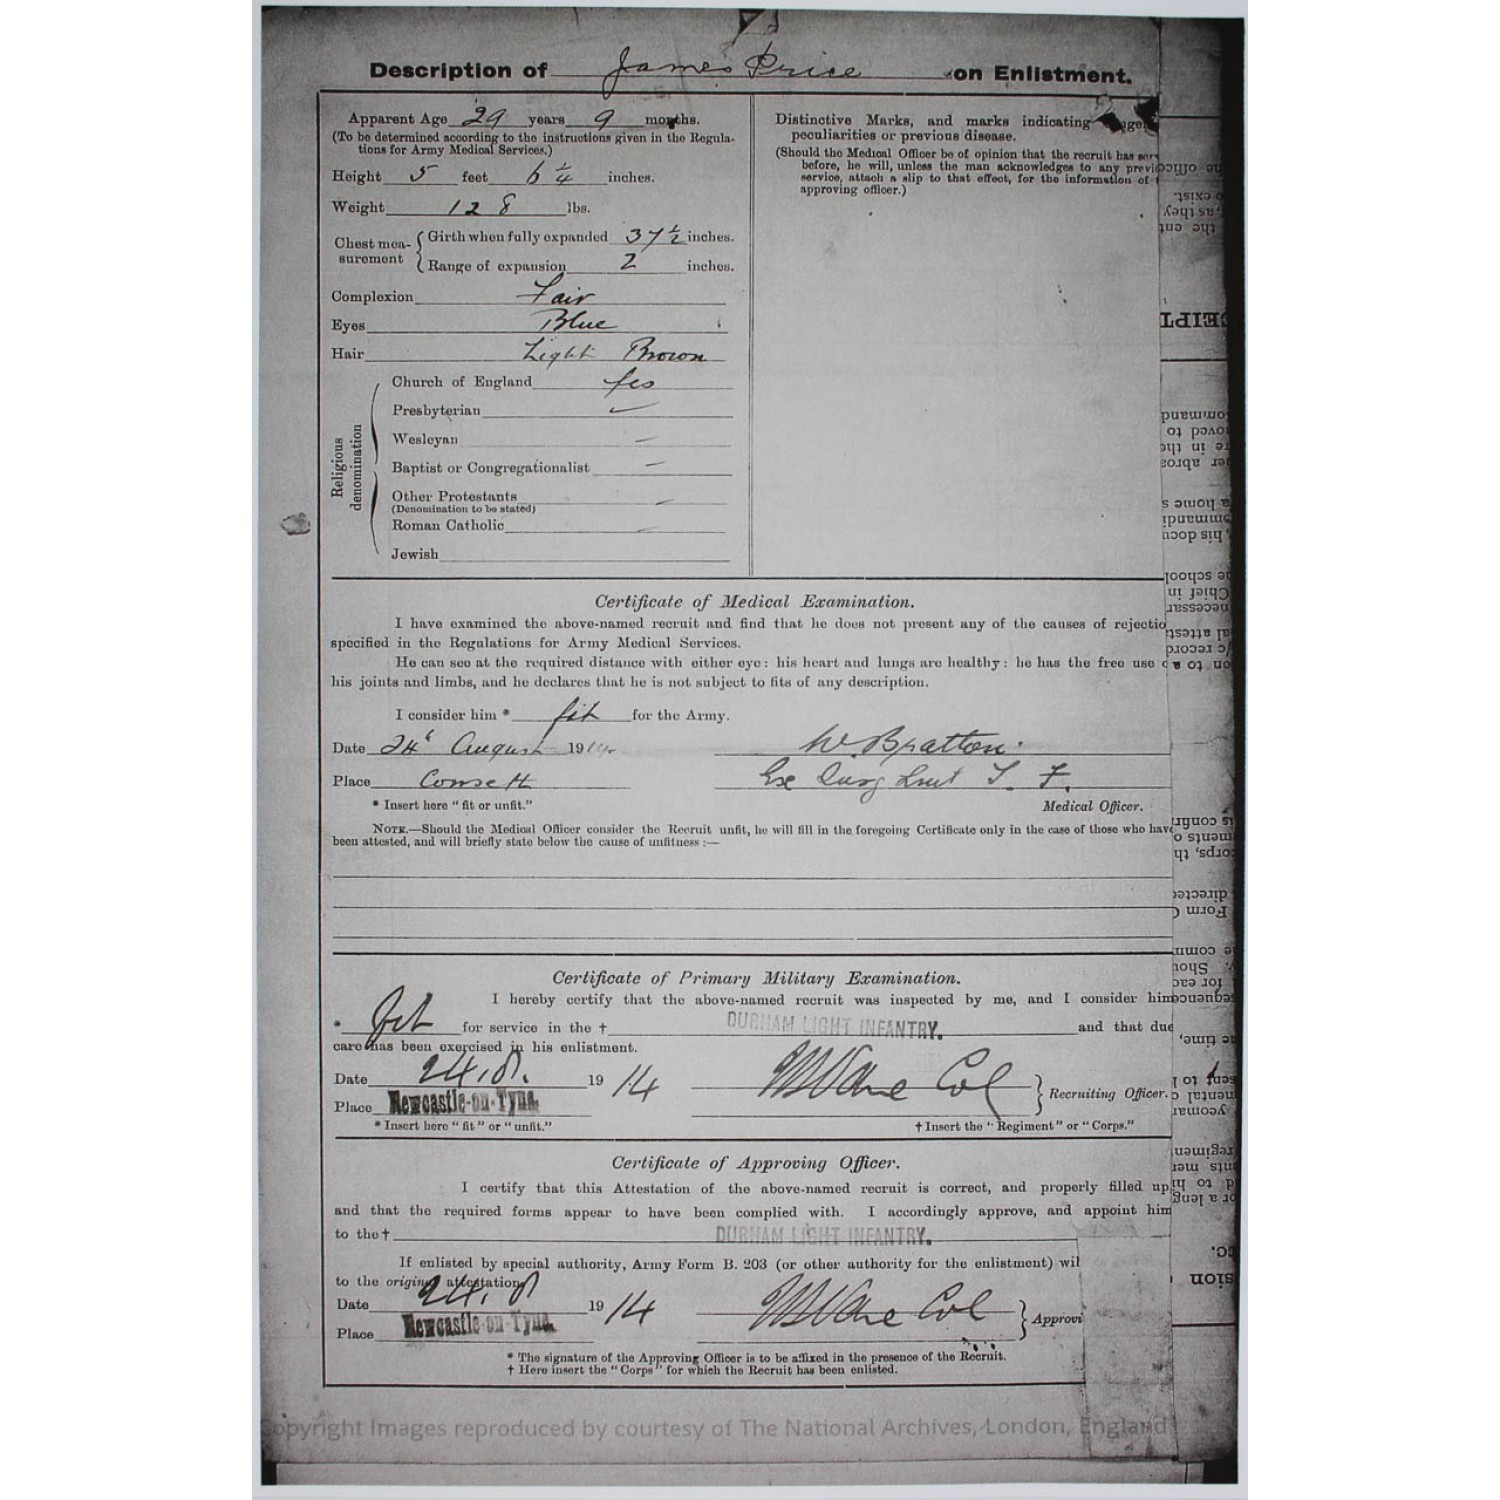 Description of James Price on Enlistment.
Apparent Age 29 years 9 months.
(To be determined according to the instructions given in the Regula-
tions for Army Medical Services.)
Height 5 feet 6 1/4 inches.
Weight 128 lbs.
Chest mea-
surement
Girth when fully expanded 37 1/2 inches.
Range of expansion 2 inches.
Complexion Fair
Eyes Blue
Hair Light Brown
Religious
denomination
Church of England Yes
Presbyterian
Wesleyan
Baptist or Congregationalist
Other Protestants
(Denomination to be stated)
Roman Catholic
Jewish
Distinctive Marks, and marks indicating
peculiarities or previous disease.
(Should the Medical Officer be of opinion that the recruit has ser
before, he will, unless the man acknowledges to any previ
service, attach a slip to that effect, for the information of
approving officer.)
Certificate of Medical Examination.
I have examined the above-named recruit and find that he does not present any of the causes of rejectio
specified in the Regulations for Army Medical Services.
He can see at the required distance with either eye: his heart and lungs are healthy: he has the free use
his joints and limbs, and he declares that he is not subject to fits of any description.
I consider him * fit for the Army.
Date 24 August 1914 W. Bratton
Place Consett T. F.
* Insert here "fit or unfit." Medical Officer.
NOTE.—Should the Medical Officer consider the Recruit unfit, he will fill in the foregoing Certificate only in the case of those who have
been attested, and will briefly state below the cause of unfitness:—
Certificate of Primary Military Examination.
I hereby certify that the above-named recruit was inspected by me, and I consider him
* fit for service in the † DURHAM LIGHT INFANTRY. and that due
care has been exercised in his enlistment.
Date 24.8. 1914 Col
Recruiting Officer.
Place Newcastle-on-Tyne.
* Insert here "fit" or "unfit." † Insert the "Regiment" or "Corps."
Certificate of Approving Officer.
I certify that this Attestation of the above-named recruit is correct, and properly filled up
and that the required forms appear to have been complied with. I accordingly approve, and appoint him
to the † DURHAM LIGHT INFANTRY.
If enlisted by special authority, Army Form B. 203 (or other authority for the enlistment) wil
to the original attestation
Date 24.8 1914 Col
Approvi
Place Newcastle-on-Tyne.
* The signature of the Approving Officer is to be affixed in the presence of the Recruit.
† Here insert the "Corps" for which the Recruit has been enlisted.
Copyright Images reproduced by courtesy of The National Archives, London, England